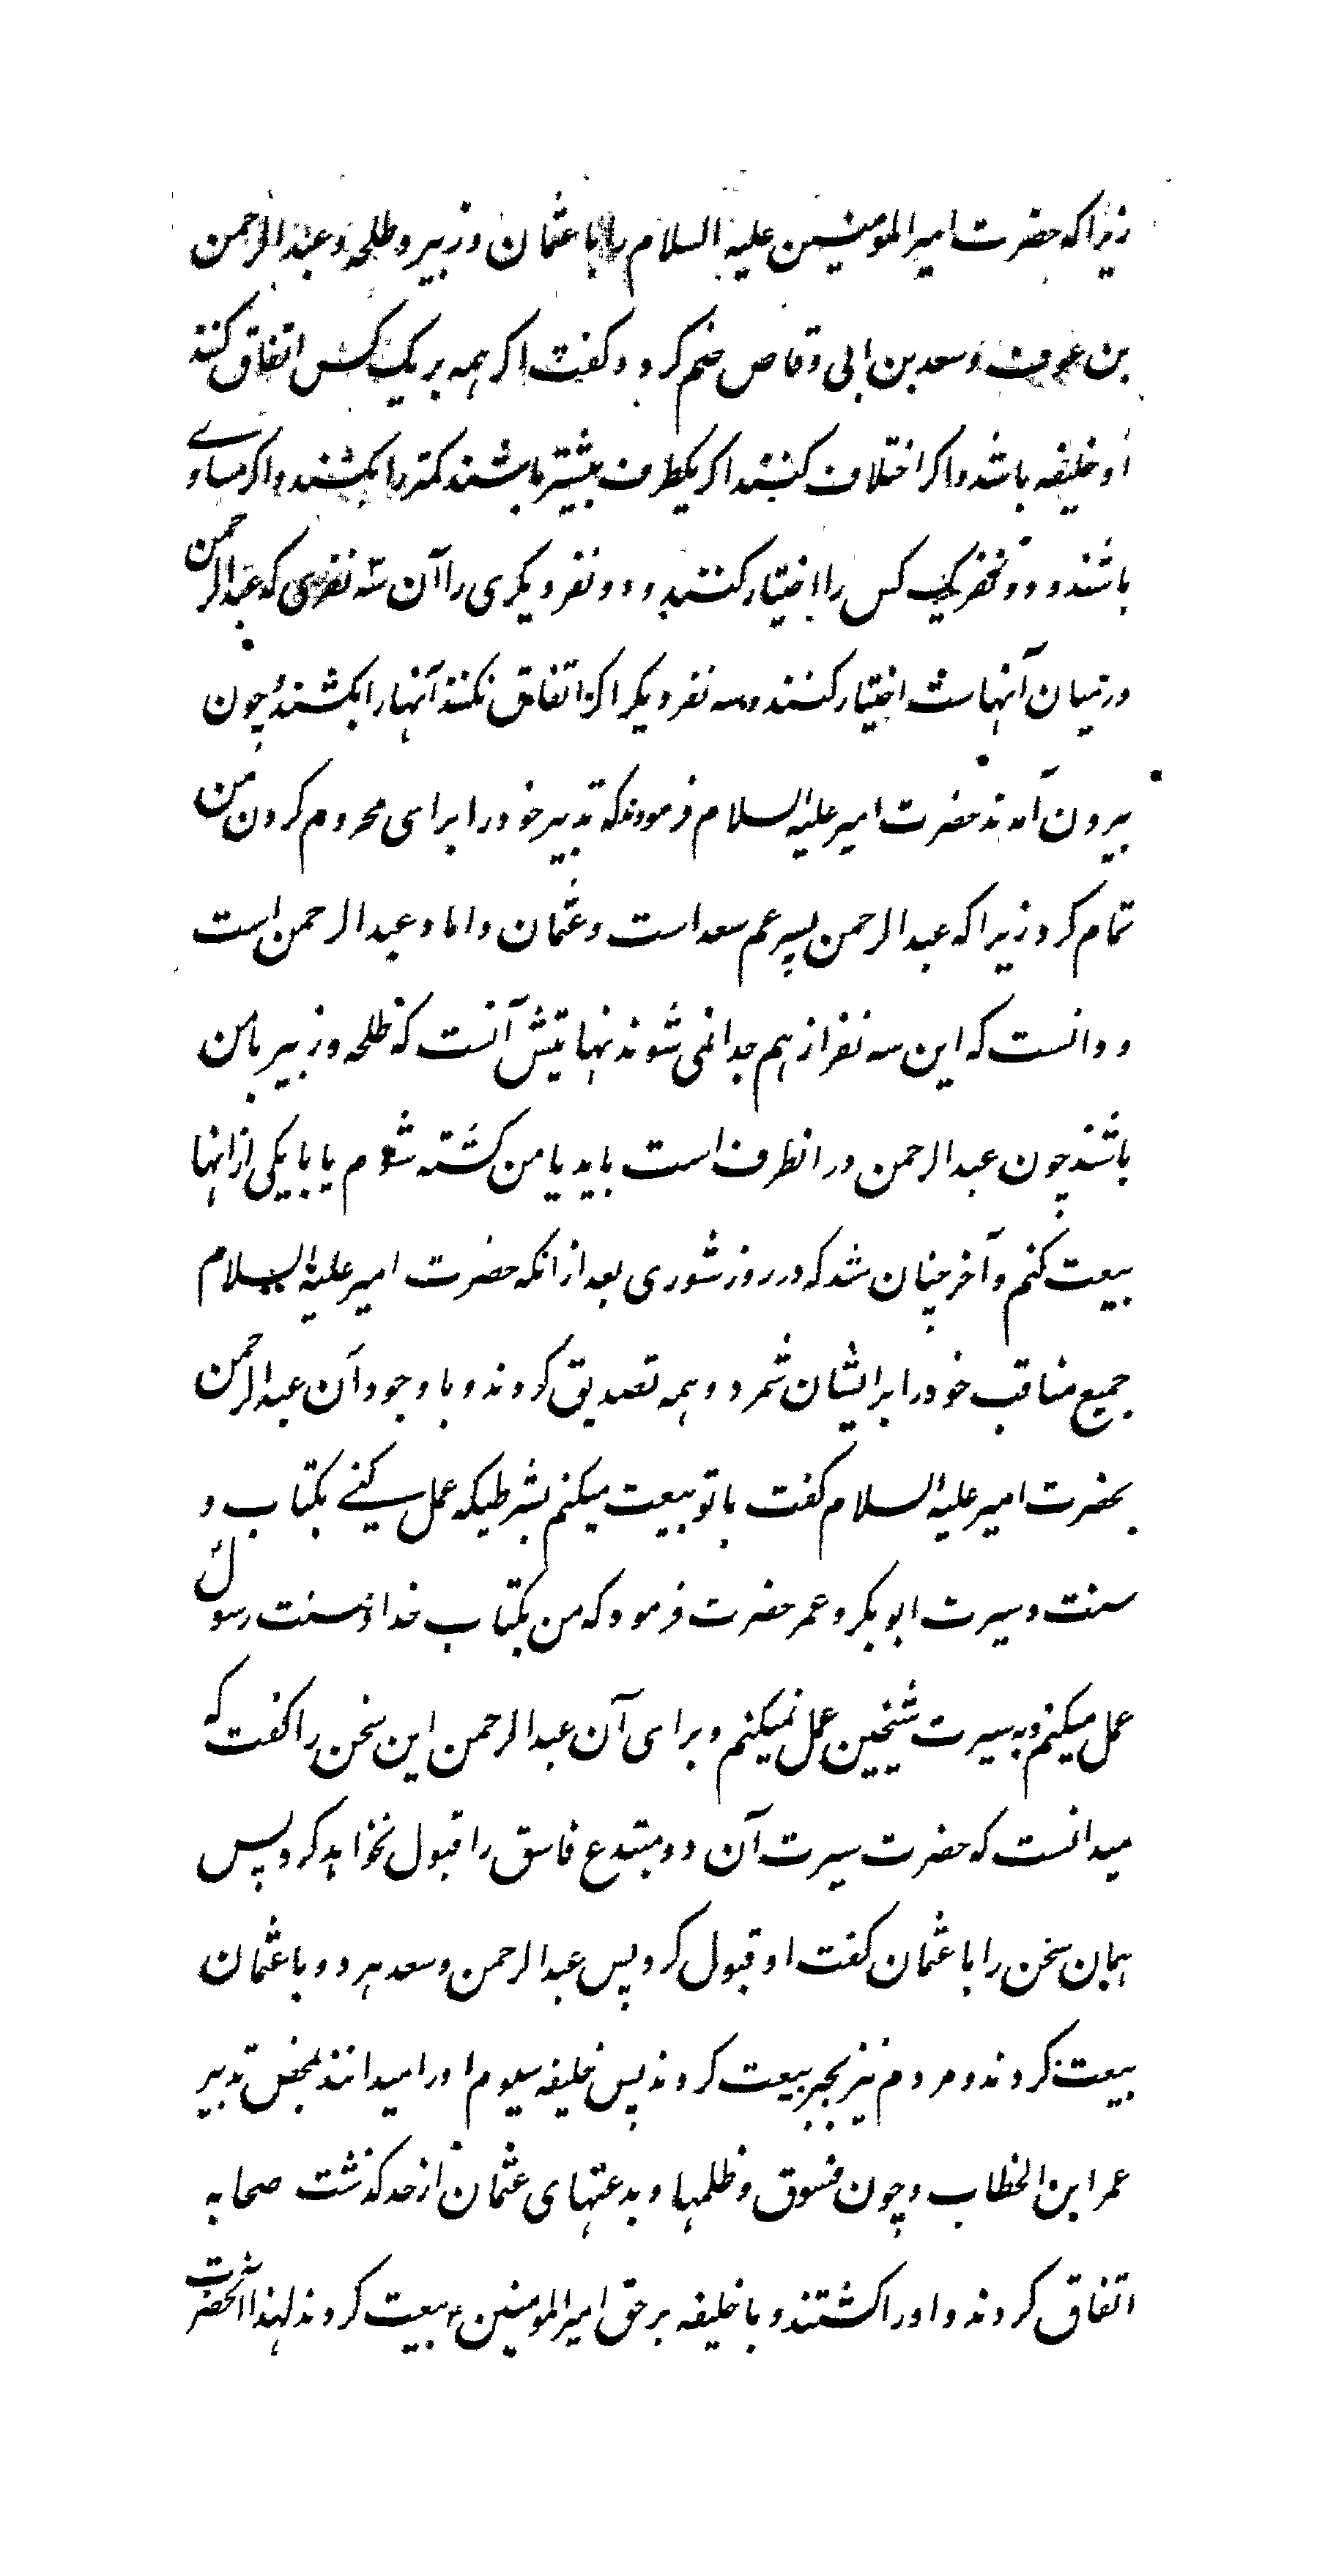 زیرا که حضرت امیرالمومنین علیه السلام را با عثمان و زبیر و طلحه و عبد الرحمن
بن عوف و سعد بن ابی وقاص ضم کرد و گفت اگر همه بر یک کس اتفاق کنند
او خلیفه باشد و اگر اختلاف کنند اگر یکطرف بیشتر باشند کمتر را بکشند و اگر مساوی
باشند و دو نفر یک کس را اختیار کنند و دو نفر دیگری را آن سه نفری که عبد الرحمن
در میان آنهاست اختیار کنند و سه نفر دیگر اگر اتفاق نکنند آنها را بکشند چون
بیرون آمدند حضرت امیر علیه السلام فرمودند که تدبیر خود را برای محروم کردن من
تمام کرد زیرا که عبد الرحمن پسر عم سعد است و عثمان داماد عبد الرحمن است
و دانست که این سه نفر از هم جدا نمی شوند نهایتش آنست که طلحه و زبیر با من
باشند چون عبد الرحمن در انطرف است باید یا من کشته شوم یا با یکی از انها
بیعت کنم و آخر چنان شد که در روز شوری بعد از انکه حضرت امیر علیه السلام
جمیع مناقب خود را بر ایشان شمرد و همه تصدیق کردند و با وجود آن عبد الرحمن
بحضرت امیر علیه السلام گفت با تو بیعت میکنم بشرطیکه عمل کنی بکتاب و
سنت و سیرت ابوبکر و عمر حضرت فرمود که من بکتاب خدا و سنت رسول
عمل میکنم و به سیرت شیخین عمل نمیکنم و برای آن عبد الرحمن این سخن را گفت که
میدانست که حضرت سیرت آن دو مبتدع فاسق را قبول نخواهد کرد پس
همان سخن را با عثمان گفت او قبول کرد پس عبد الرحمن و سعد هر دو با عثمان
بیعت کردند و مردم نیز بجبر بیعت کردند پس خلیفه سیوم او را میدانند بمحض تدبیر
عمر ابن الخطاب و چون فسوق و ظلمها و بدعتهای عثمان از حد گذشت صحابه
اتفاق کردند و او را کشتند و با خلیفه بر حق امیرالمومنین ع بیعت کردند لهذا آنحضرت